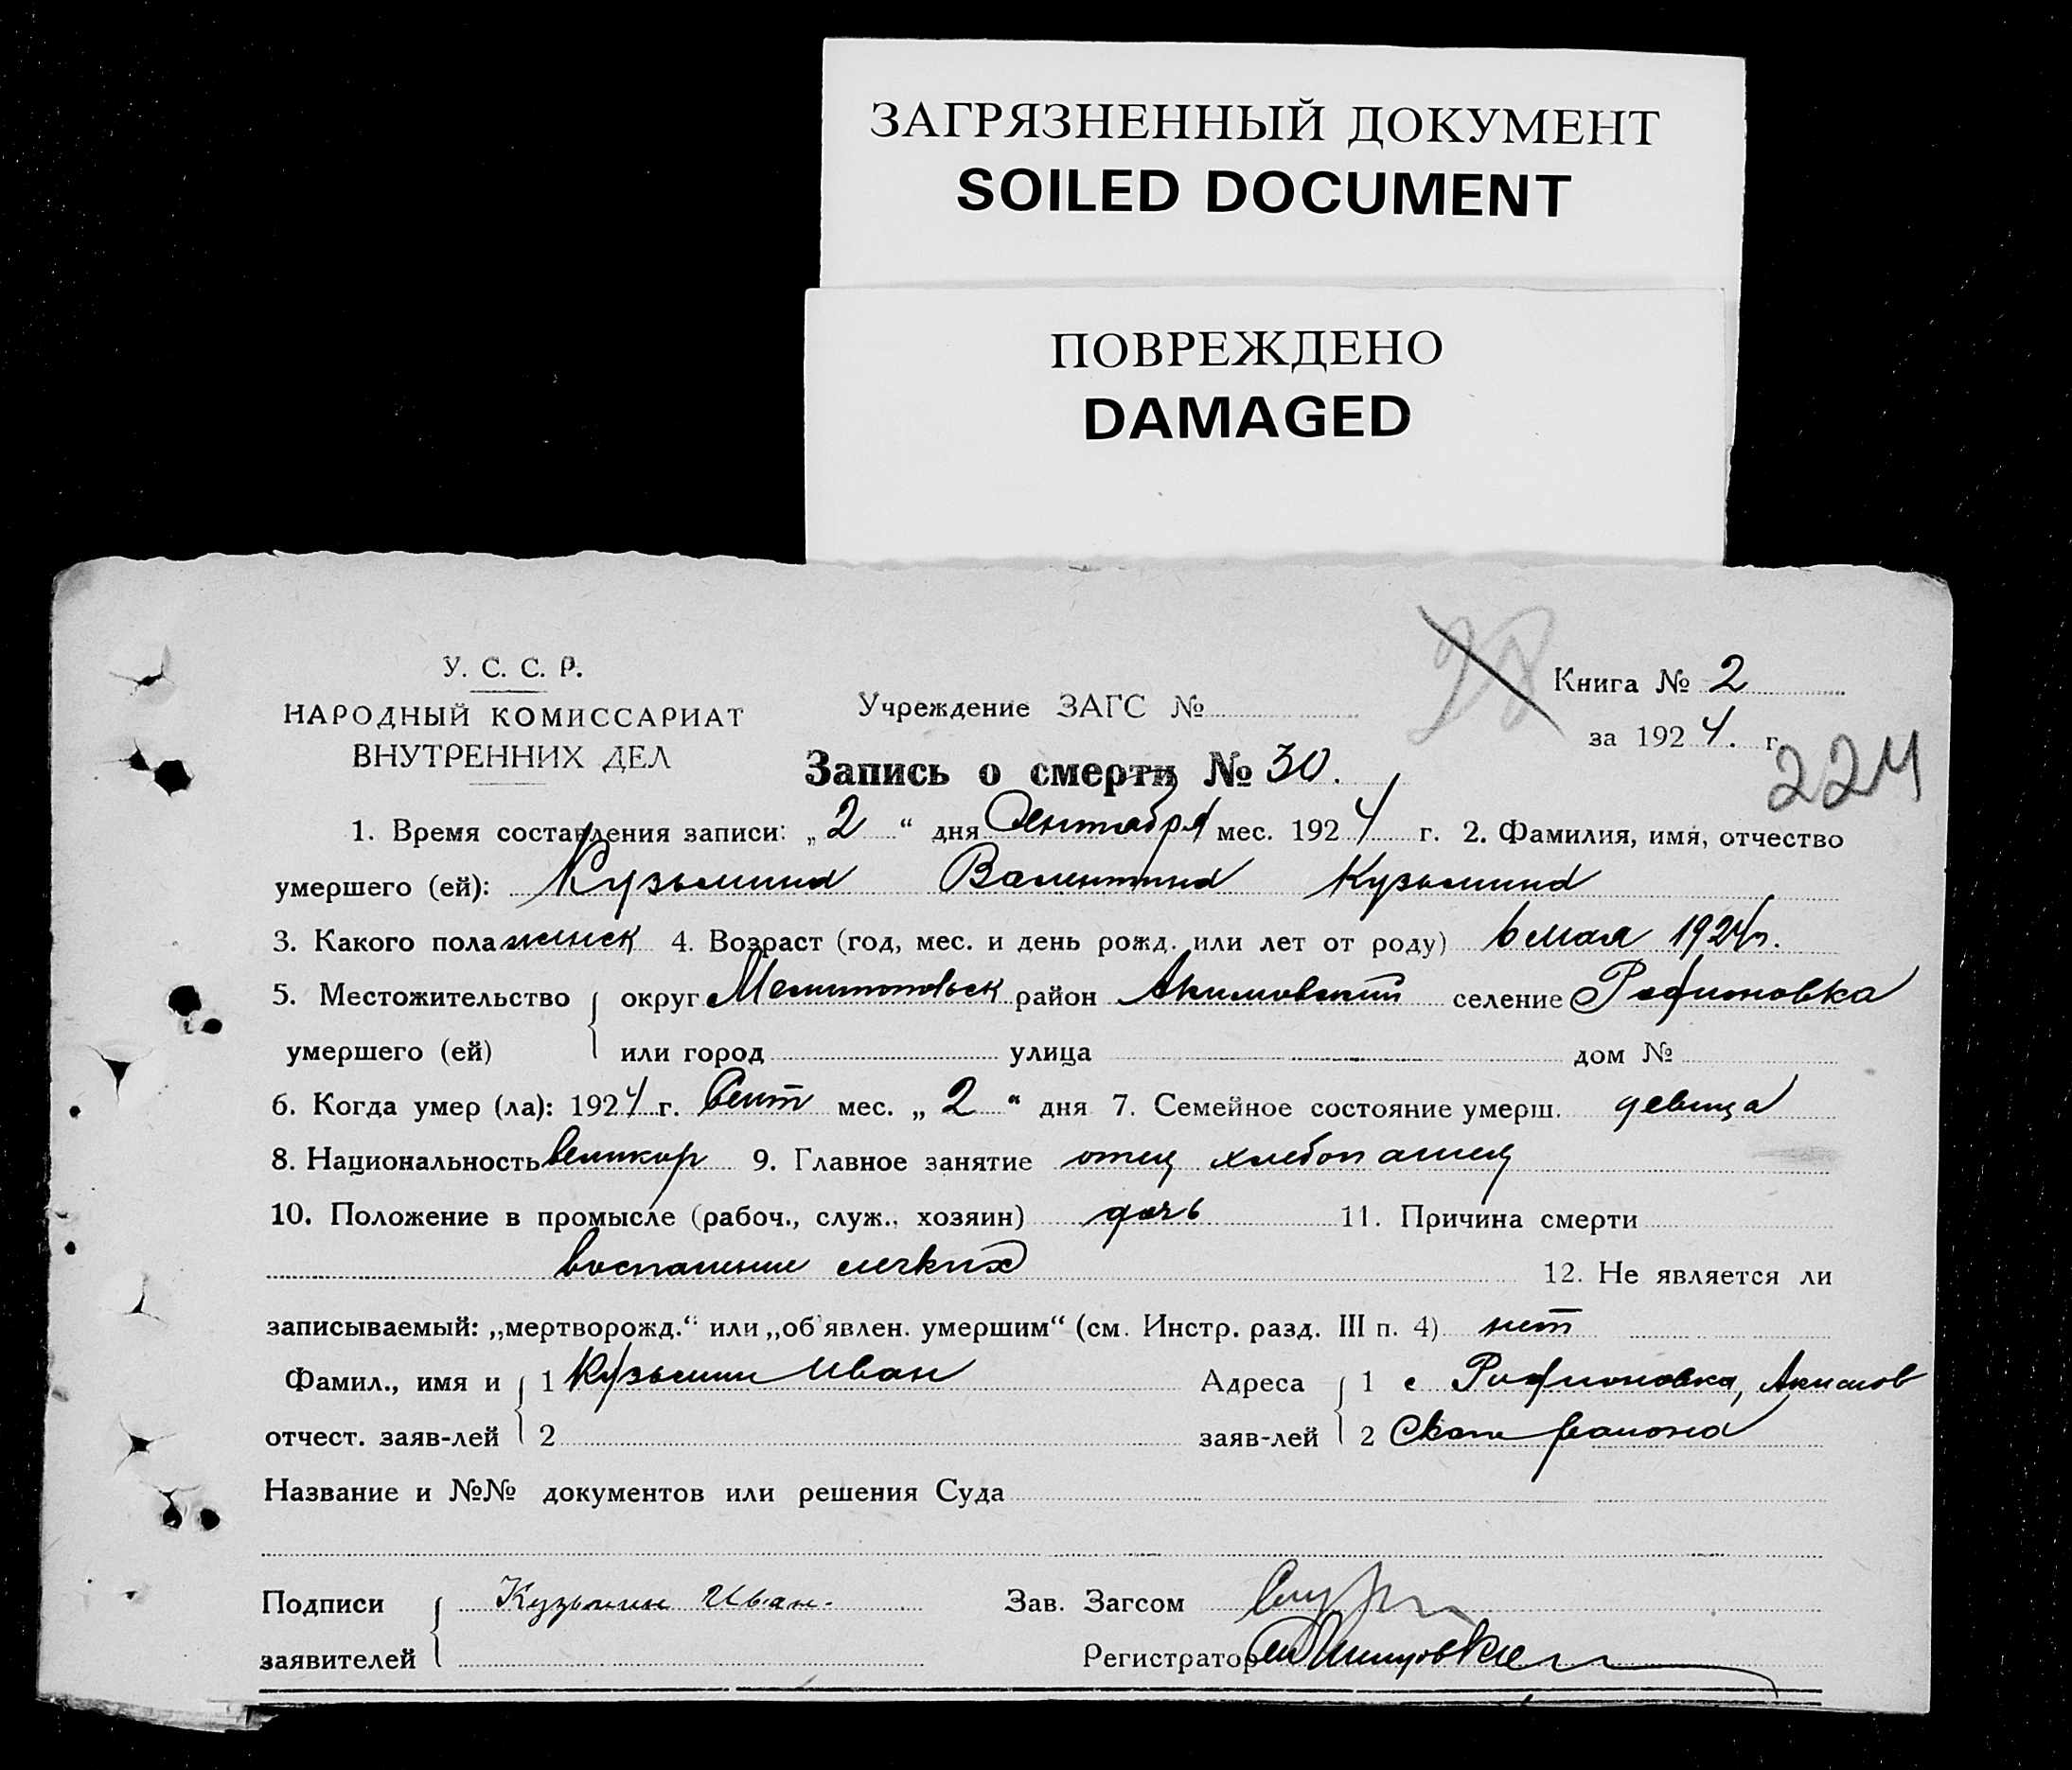 ЗАГРЯЗНЕННЫЙ ДОКУМЕНТ
SOILED DOCUMENT
ПОВРЕЖДЕНО
DAMAGED
У. С. С. Р.
НАРОДНЫЙ КОМИССАРИАТ
ВНУТРЕННИХ ДЕЛ
Учреждение ЗАГС №
28
Книга № 2
за 1924. г.
224
Запись о смерти № 30.
1. Время составления записи: „2“ дня Сентября мес. 1924 г. 2. Фамилия, имя, отчество
умершего (ей): Кузьмина Валентина Кузьмина
3. Какого пола женск 4. Возраст (год, мес. и день рожд. или лет от роду) 6 мая 1924 г.
5. Местожительство округ Мелитопольск район Акимовский селение Родионовка
умершего (ей) или город улица дом №
6. Когда умер (ла): 1924 г. Сент мес. „2“ дня 7. Семейное состояние умерш. девица
8. Национальность великор 9. Главное занятие отец хлебопашец
10. Положение в промысле (рабоч., служ., хозяин) дочь 11. Причина смерти
воспаление легких 12. Не является ли
записываемый: „мертворожд.“ или „об'явлен. умершим“ (см. Инстр. разд. III п. 4) нет
Фамил., имя и 1 Кузьмин Иван Адреса 1 с Родионовка, Акимов
отчест. заяв-лей 2 заяв-лей 2 района
Название и №№ документов или решения Суда
Подписи Кузьмин Иван. Зав. Загсом
заявителей Регистратор